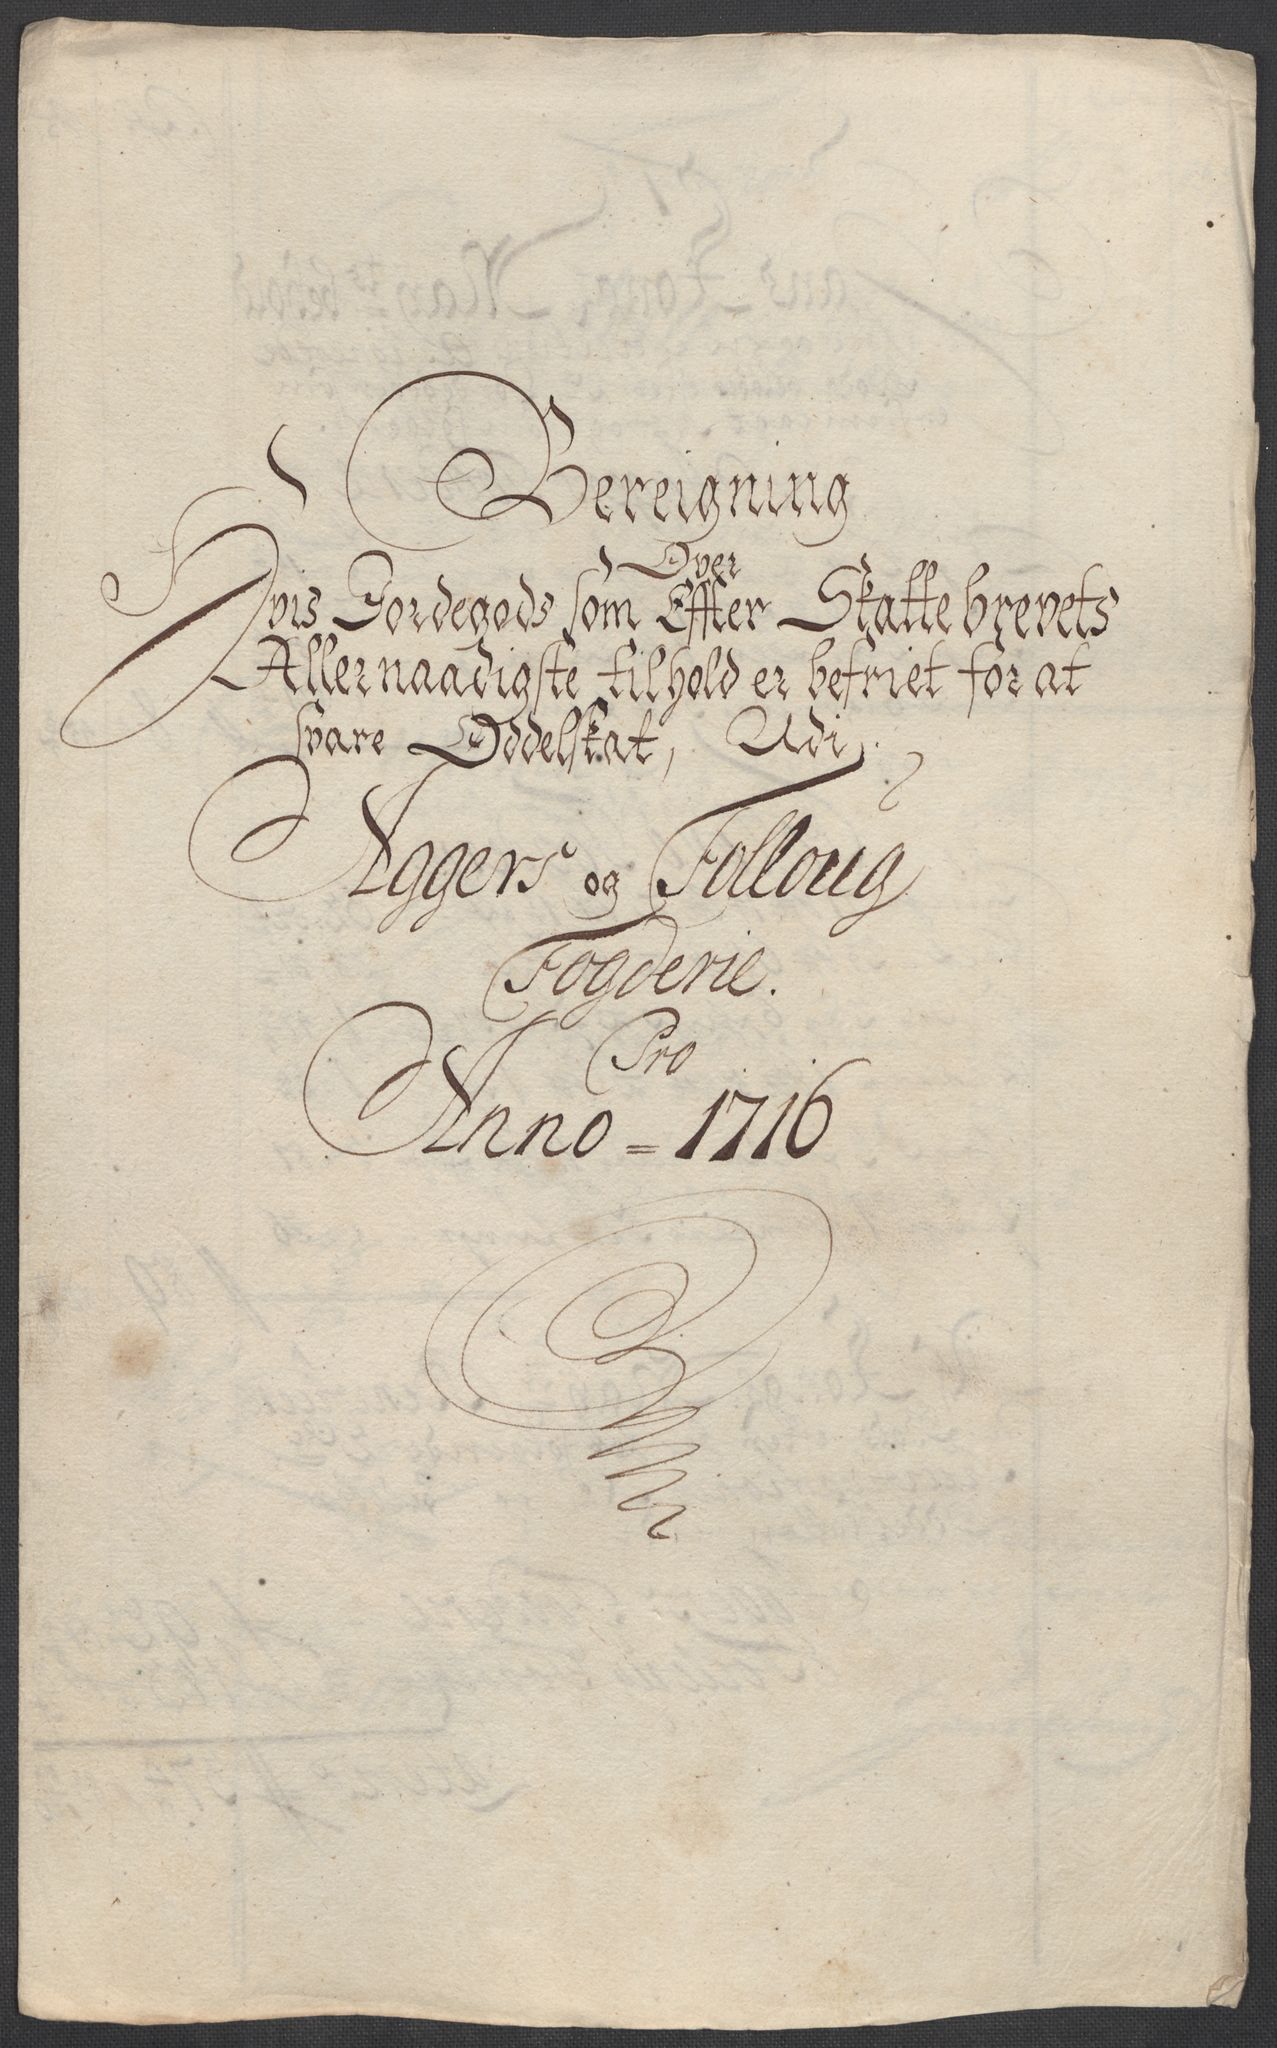 Bereigning
Over
Hvis Jordegods som Effter Skattebrevets
Allernaadigste tilhold er befriet for at
svare Oddelskat, Udi
Aggers og Folloug
Fogderie.
Pro
Anno = 1716